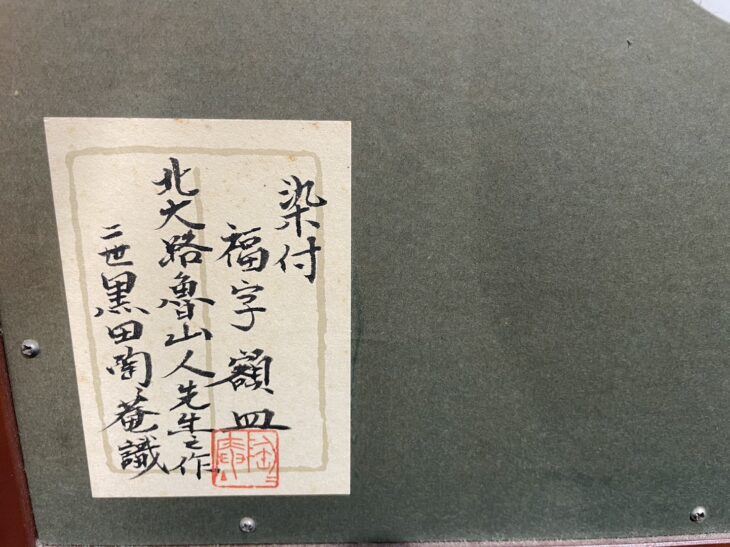 染付
福字 額皿
北大路魯山人先生之作
二世黒田陶菴識